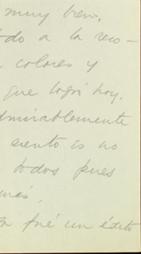 muy bien,
do a la reco-
colores y
que logré hoy.
dmirablemente
siento es no
todos pues
más.
fué un éxito